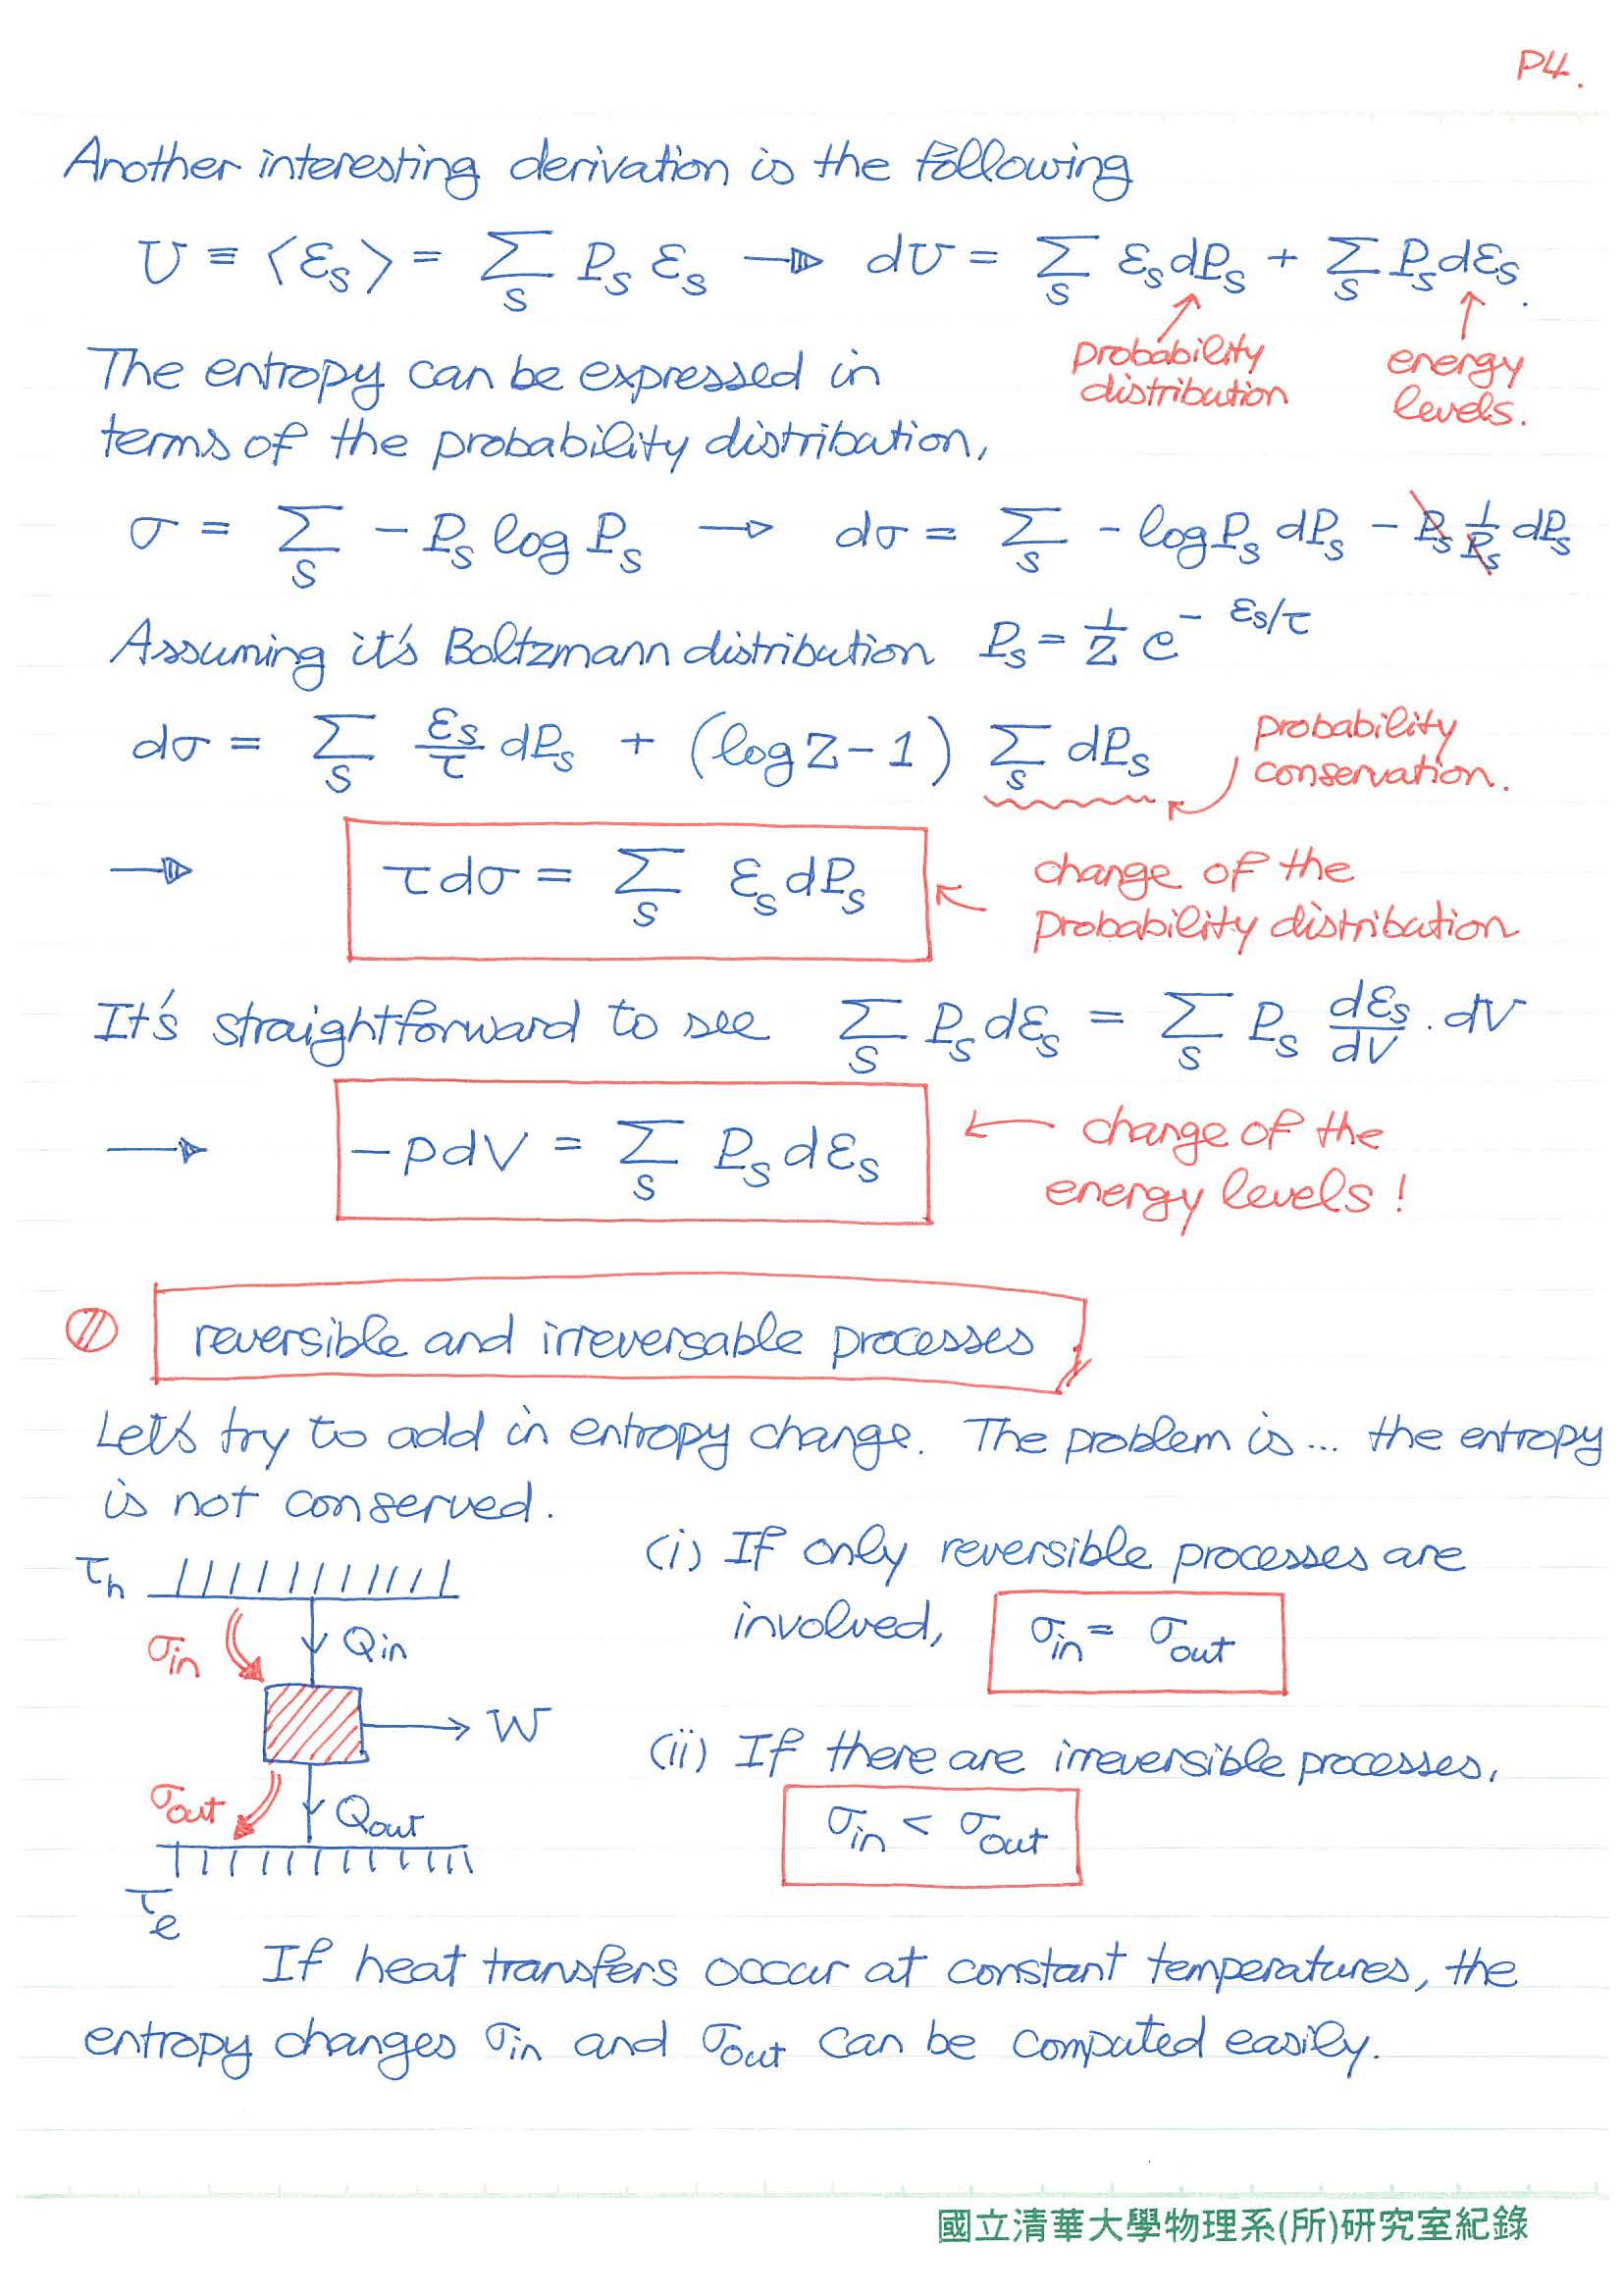 P4.
Another interesting derivation is the following
U ≡ ⟨εs⟩ = Σs Ps εs → dU = Σs εs dPs + Σs Ps dεs.
probability distribution
energy levels.
The entropy can be expressed in
terms of the probability distribution,
σ = Σs - Ps log Ps → dσ = Σs - log Ps dPs - Ps 1/Ps dPs
Assuming it's Boltzmann distribution Ps = 1/Z e^- εs/τ
dσ = Σs εs/τ dPs + (log Z - 1) Σs dPs
probability conservation.
→ τdσ = Σs εs dPs
change of the
probability distribution
It's straightforward to see Σs Ps dεs = Σs Ps dεs/dV · dV
→ -pdV = Σs Ps dεs
change of the
energy levels!
reversible and irreversable processes
Let's try to add in entropy change. The problem is... the entropy
is not conserved.
τh
σin Qin
W
σout Qout
τe
(i) If only reversible processes are
involved, σin = σout
(ii) If there are irreversible processes,
σin < σout
If heat transfers occur at constant temperatures, the
entropy changes σin and σout can be computed easily.
國立清華大學物理系(所)研究室紀錄